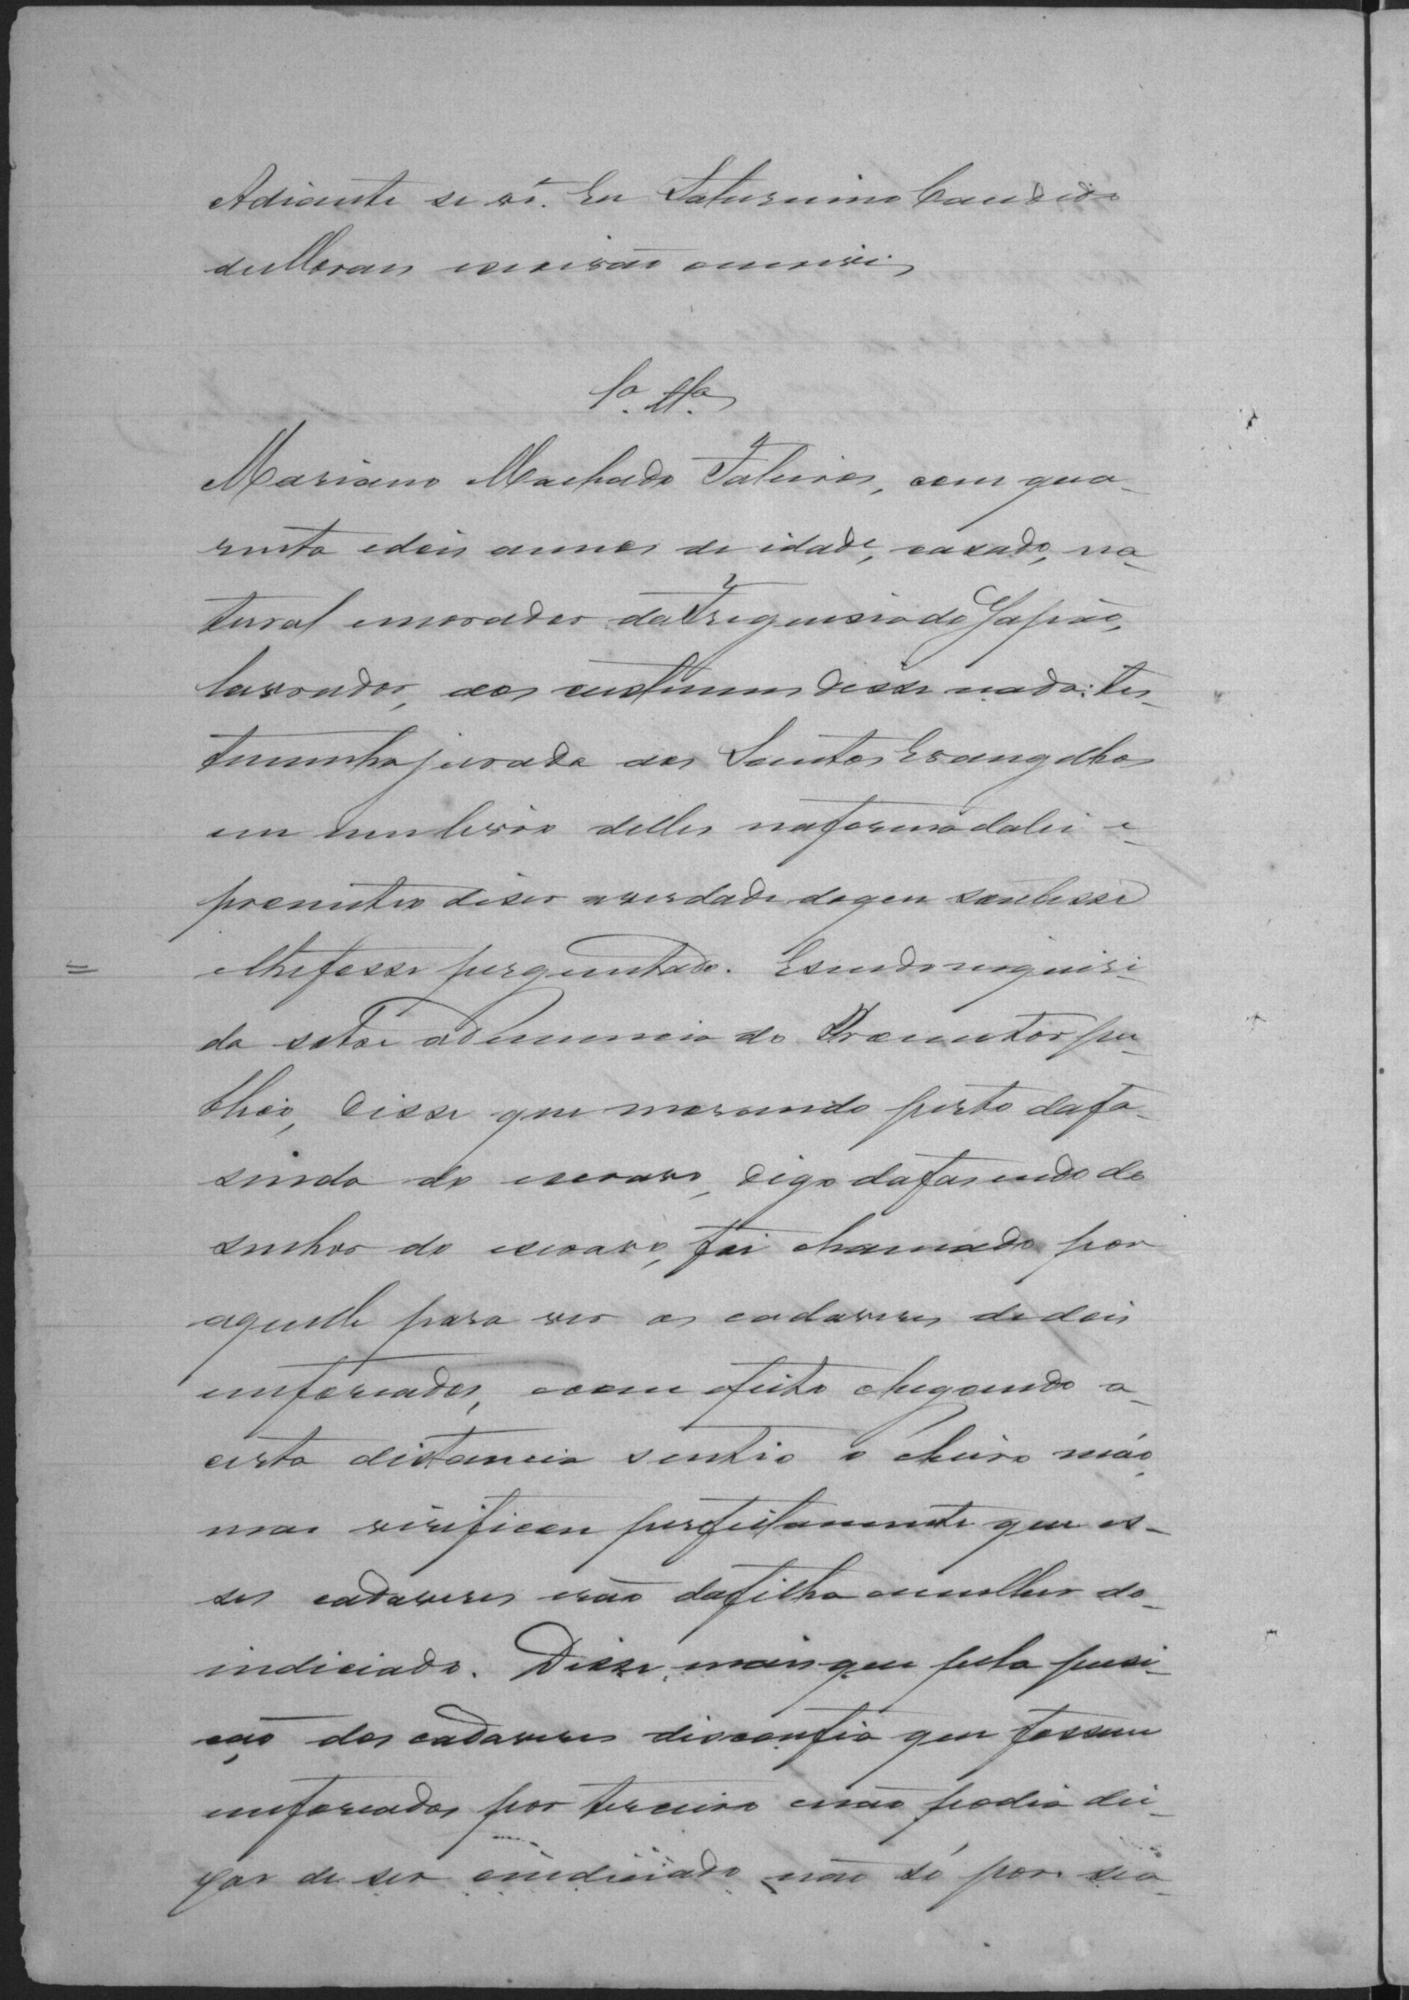 Adiante se vê. Eu Saturnino Candido
de Moraes escrivão o escrevi
1ª Tª
Mariano Machado, com qua-
renta e dois annos de idade, casado, na-
tural e morador da Freguesia do
lavrador, aos custumes disse nada: tes-
timunha jurada aos Santos Evangelhos
em um livro delles na forma da lei e
prometeo diser a verdade do que soubesse
e lhe fosse perguntado. E sendo inquiri-
da sobre a denuncia do Promutor pu-
blico, disse que morando perto da fa-
senda do escravo, digo da fasenda do
senhor do escravo, foi chamado por
aquelle para ver os cadaveres de dois
enforcados, e com efeito chegando a
certa distancia sentio o cheiro máo,
mas virificou perfeitamente que es-
ses cadaveres erão da filha e mulher do
indiciado. Disse mais que pela pusi-
ção dos cadaveres disconfia que fossem
enforcados por terceiro e não podia dei-
xar de ser o indiciado não só por ser o